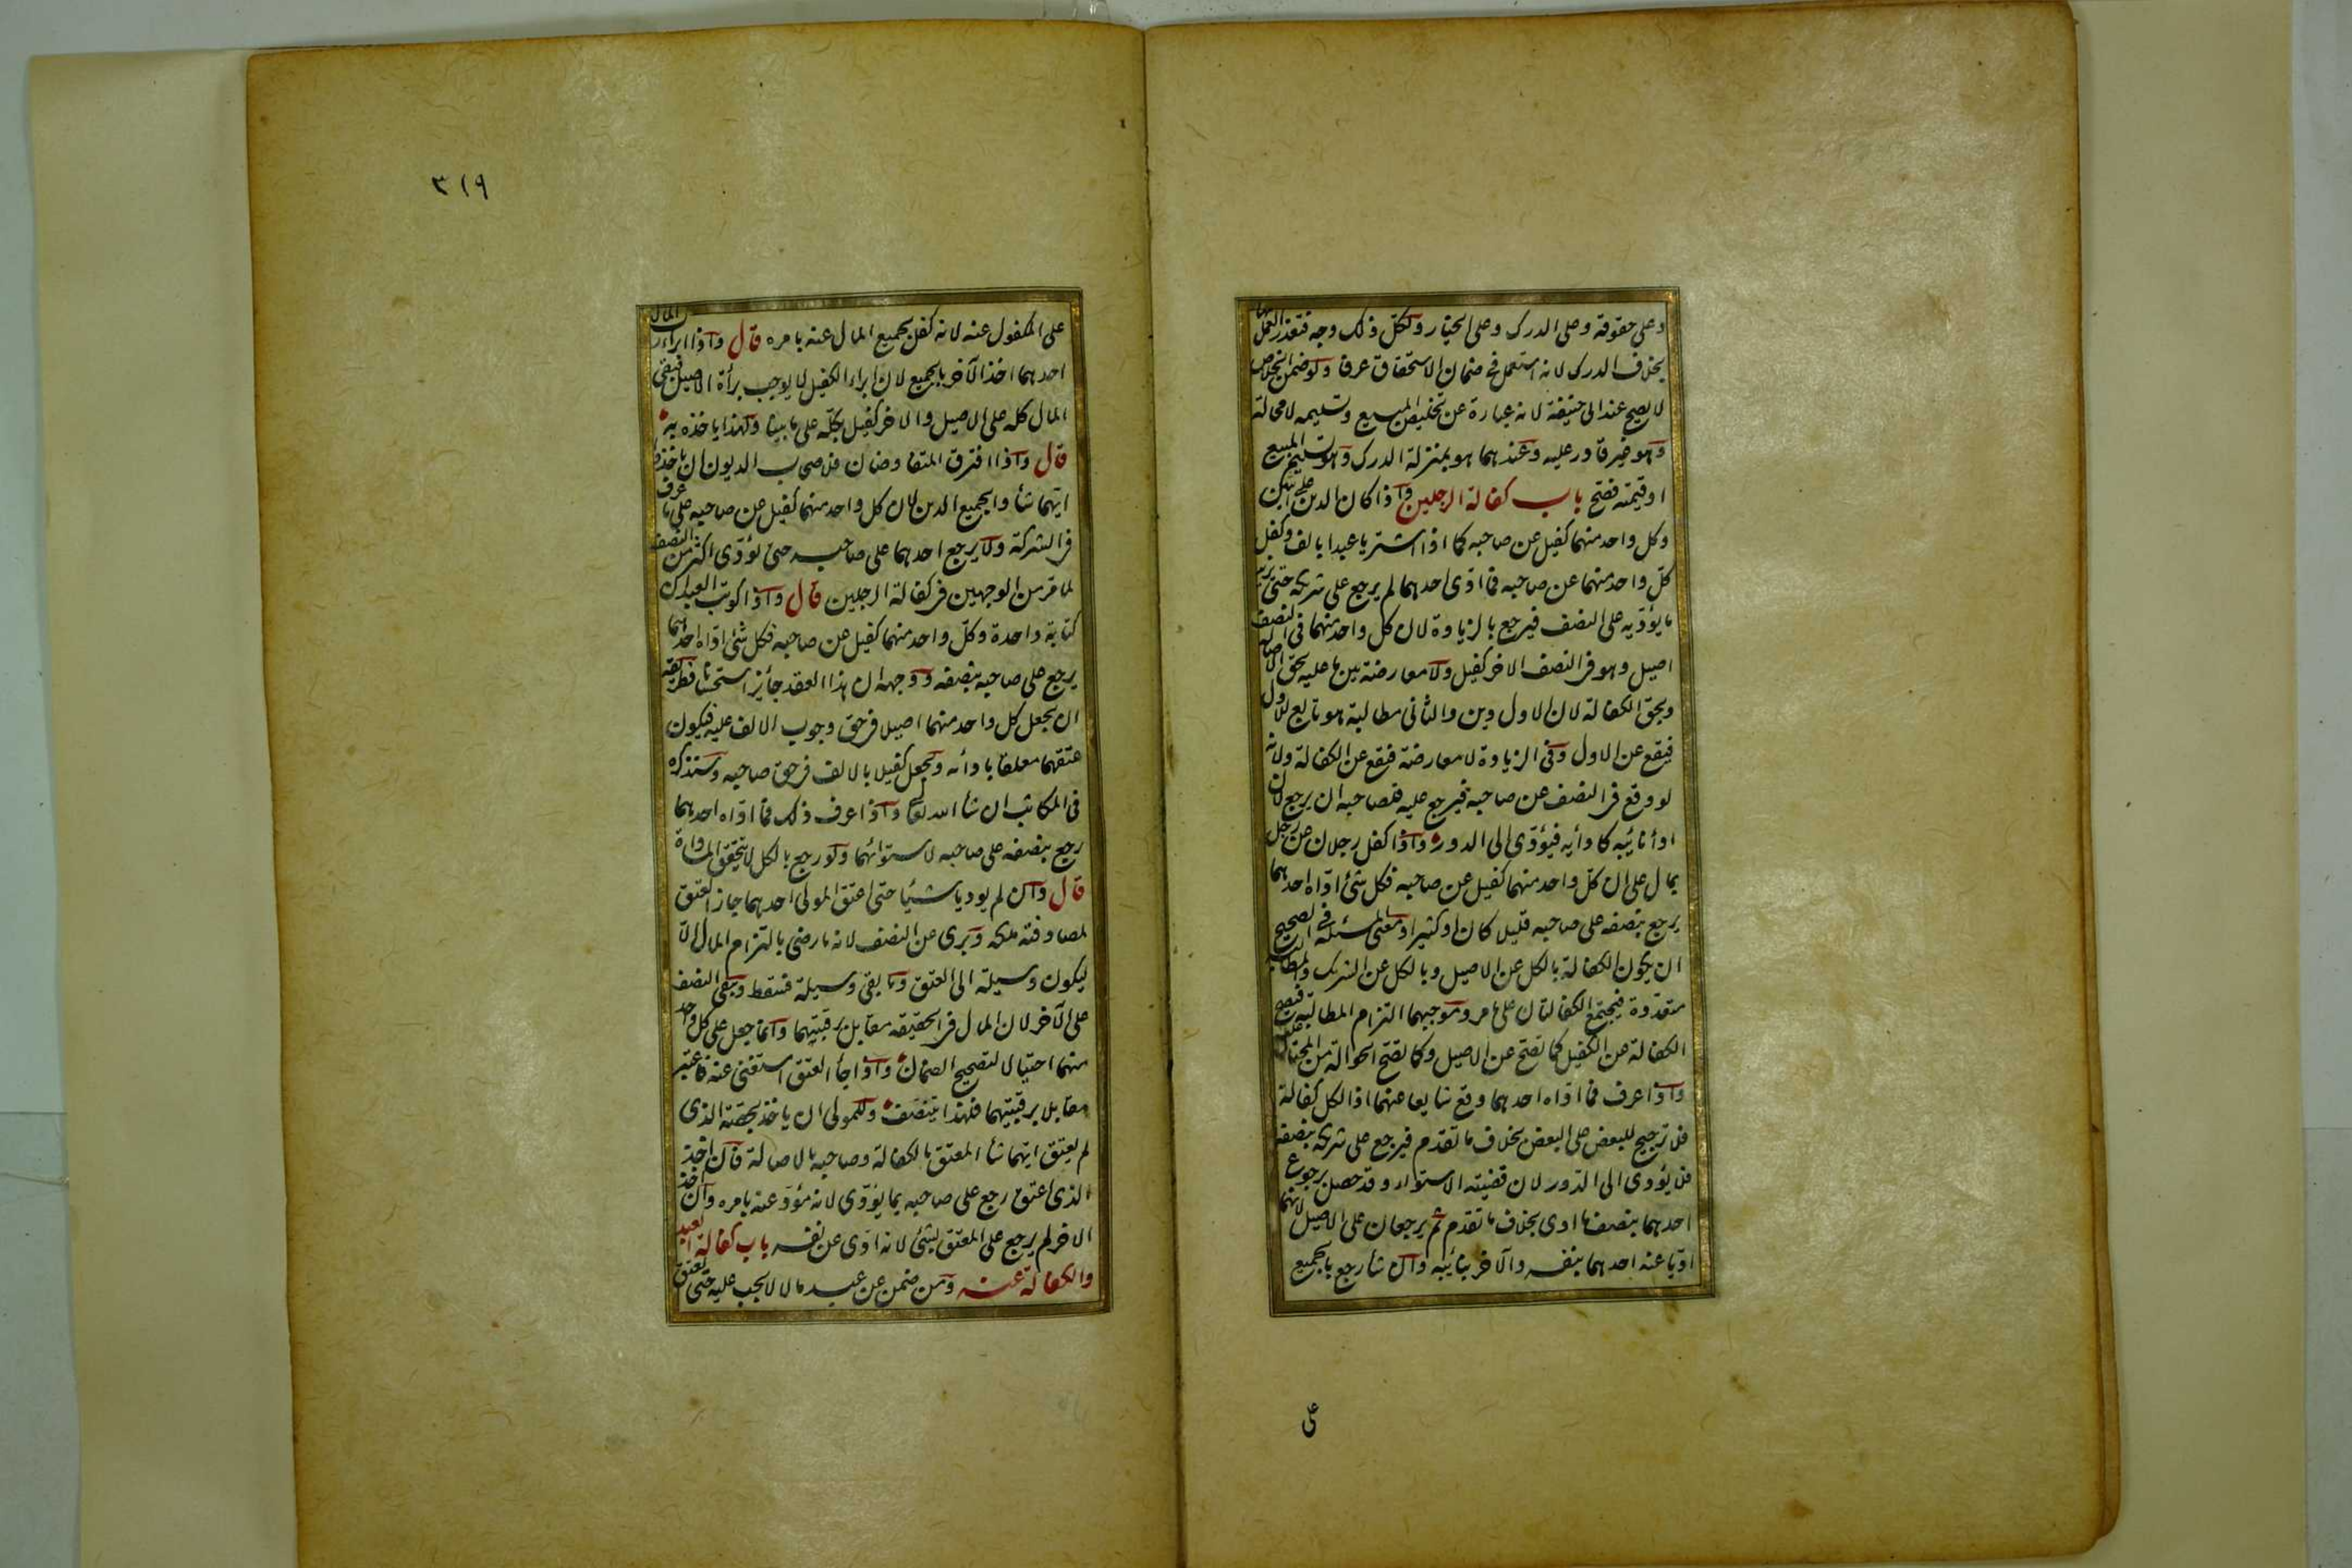 وعلى حقوقه وعلى الدرك وعلى الخيار ولكل ذلك وجه فتعذر العمل بها
بخلاف الدرك لانه استعمل في ضمان الاستحقاق عرفا ولو ضمن الخلاص
لا يصح عند ابى حنيفة لانه عبارة عن تخليص المبيع وتسليمه لا محالة
وهو غير قادر عليه وعندهما هو بمنزلة الدرك وهو تسليم المبيع
او قيمته فصح باب كفالة الرجلين واذا كان الدين على اثنين
وكل واحد منهما كفيل عن صاحبه كما اذا اشتريا عبدا بالف وكفل
كل واحد منهما عن صاحبه فما ادى احدهما لم يرجع على شريكه حتى يزيد
ما يؤديه على النصف فيرجع بالزيادة لان كل واحد منهما في النصف
اصيل وهو في النصف الاخر كفيل ولا معارضة بين ما عليه بحق الاصالة
وبحق الكفالة لان الاول دين والثاني مطالبة هو تابع للاول
فيقع عن الاول وفي الزيادة لا معارضة فيقع عن الكفالة ولانه
لو وقع في النصف عن صاحبه فيرجع عليه فلصاحبه ان يرجع لان
اداء نائبه كادائه فيؤدى الى الدور واذا كفل رجلان عن رجل
بمال على ان كل واحد منهما كفيل عن صاحبه فكل شئ اداه احدهما
يرجع بنصفه على صاحبه قليلا كان او كثيرا ومعنى المسئلة في الصحيح
ان يكون الكفالة بالكل عن الاصيل وبالكل عن الشريك والمطالبة
متعددة فيجتمع الكفالتان على ما مر وموجبهما التزام المطالبة فيصح
الكفالة عن الكفيل كما تصح عن الاصيل وكما تصح الحوالة من المحتال عليه
واذا عرف فما اداه احدهما وقع شايعا عنهما اذ الكل كفالة
فلا ترجيح للبعض على البعض بخلاف ما تقدم فيرجع على شريكه بنصفه
فلا يؤدى الى الدور لان قضيته الاستواء وقد حصل برجوع
احدهما بنصف ما ادى بخلاف ما تقدم ثم يرجعان على الاصيل لانهما
اديا عنه احدهما بنفسه والاخر بنائبه وان شاء رجع بالجميع
على
٣١٩
على المكفول عنه لانه كفل بجميع المال عنه بامره قال واذا ابراء رب المال
احدهما اخذ الآخر بالجميع لان ابراء الكفيل لا يوجب برأة الاصيل فبقى
المال كله على الاصيل والاخر كفيل بكله على ما بينا ولهذا ياخذه به
قال واذا افترق المتفاوضان فلاصحاب الديون ان ياخذوا
ايهما شاؤا بجميع الدين لان كل واحد منهما كفيل عن صاحبه على ما عرف
في الشركة ولا يرجع احدهما على صاحبه حتى يؤدى اكثر من النصف
لما مر من الوجهين في كفالة الرجلين قال واذا كوتب العبدان
كتابة واحدة وكل واحد منهما كفيل عن صاحبه فكل شئ اداه احدهما
يرجع على صاحبه بنصفه ووجهه ان هذا العقد جائز استحسانا فطريقه
ان يجعل كل واحد منهما اصيلا في حق وجوب الالف عليه فيكون
عتقهما معلقا بادائه ويجعل كفيلا بالالف في حق صاحبه وسنذكره
في المكاتب ان شاء الله تعالى واذا عرف ذلك فما اداه احدهما
رجع بنصفه على صاحبه لاستوائهما ولو رجع بالكل لا يتحقق المساواة
قال وان لم يوديا شيئا حتى اعتق المولى احدهما جاز العتق
لمصادفته ملكه وبرى عن النصف لانه ما رضى بالتزام المال الا
ليكون وسيلة الى العتق وما بقى وسيلة فتسقط ويبقى النصف
على الآخر لان المال في الحقيقه مقابل برقبتيهما وانما جعل على كل واحد
منهما احتيالا لتصحيح الضمان واذا جاء العتق استغنى عنه فاعتبر
مقابلا برقبتيهما فلهذا يتنصف وللمولى ان ياخذ بحصة الذى
لم يعتق ايهما شاء المعتق بالكفالة وصاحبه بالاصالة فان اخذ
الذى اعتق رجع على صاحبه بما يؤدى لانه مؤد عنه بامره وان اخذ
الاخر لم يرجع على المعتق بشئ لانه ادى عن نفسه باب كفالة العبد
والكفالة عنه ومن ضمن عن عبد مالا لا يجب عليه حتى يعتق